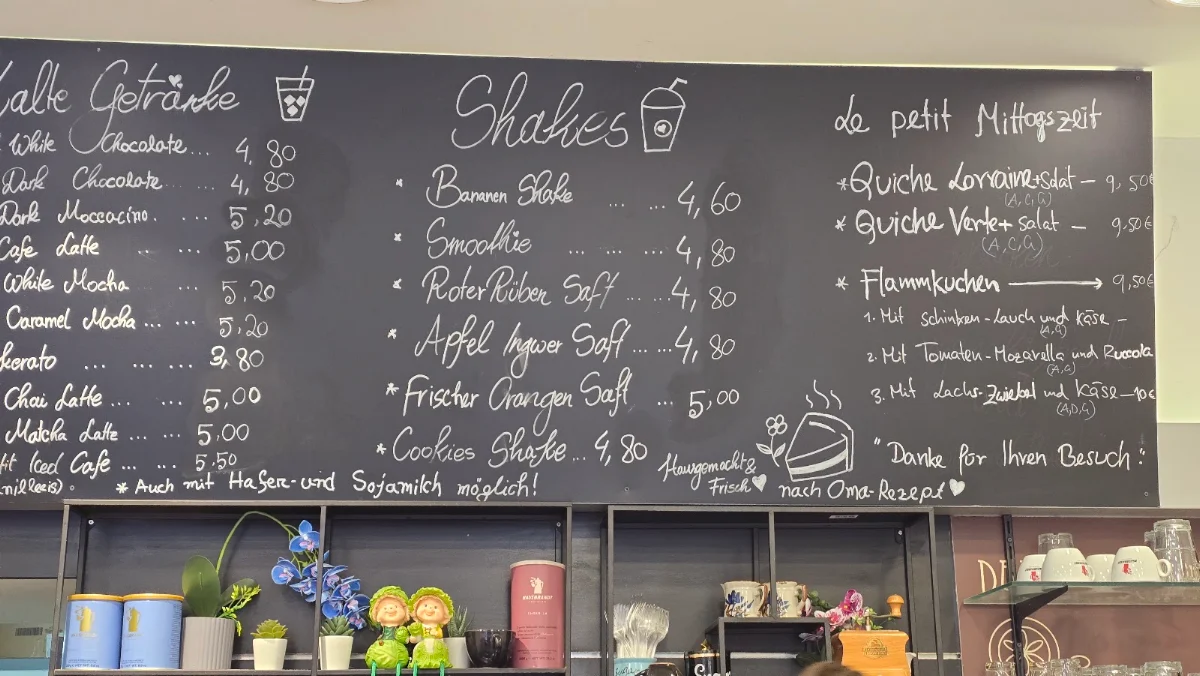 Kalte Getränke
White Chocolate... 4,80
Dark Chocolate ... 4,80
Dark Moccacino. ... 5,20
Cafe Latte ... 5,00
White Mocha ... 5,20
Caramel Mocha ... ... 5,20
... ... ... 3,80
Chai Latte ... ... 5,00
Matcha Latte ... ... 5,00
Iced Cafe ... ... 5,50
* Auch mit Hafer- und Sojamilch möglich!
Shakes
* Bananen Shake ... ... 4,60
* Smoothie ... ... 4,80
* Roter Rüben Saft ... ... 4,80
* Apfel Ingwer Saft ... ... 4,80
* Frischer Orangen Saft ... 5,00
* Cookies Shake ... 4,80
Hausgemacht &
Frisch nach Oma-Rezept
Le petit Mittagszeit
* Quiche Lorraine + Salat — 9,50€
(A,C,G)
* Quiche Verte + Salat — 9,50€
(A,C,G)
* Flammkuchen → 9,50€
1. Mit Schinken-Lauch und Käse -
(A,G)
2. Mit Tomaten-Mozarella und Ruccola
(A,G)
3. Mit Lachs-Zwiebel und Käse — 10€
(A,D,G)
"Danke für Ihren Besuch!"